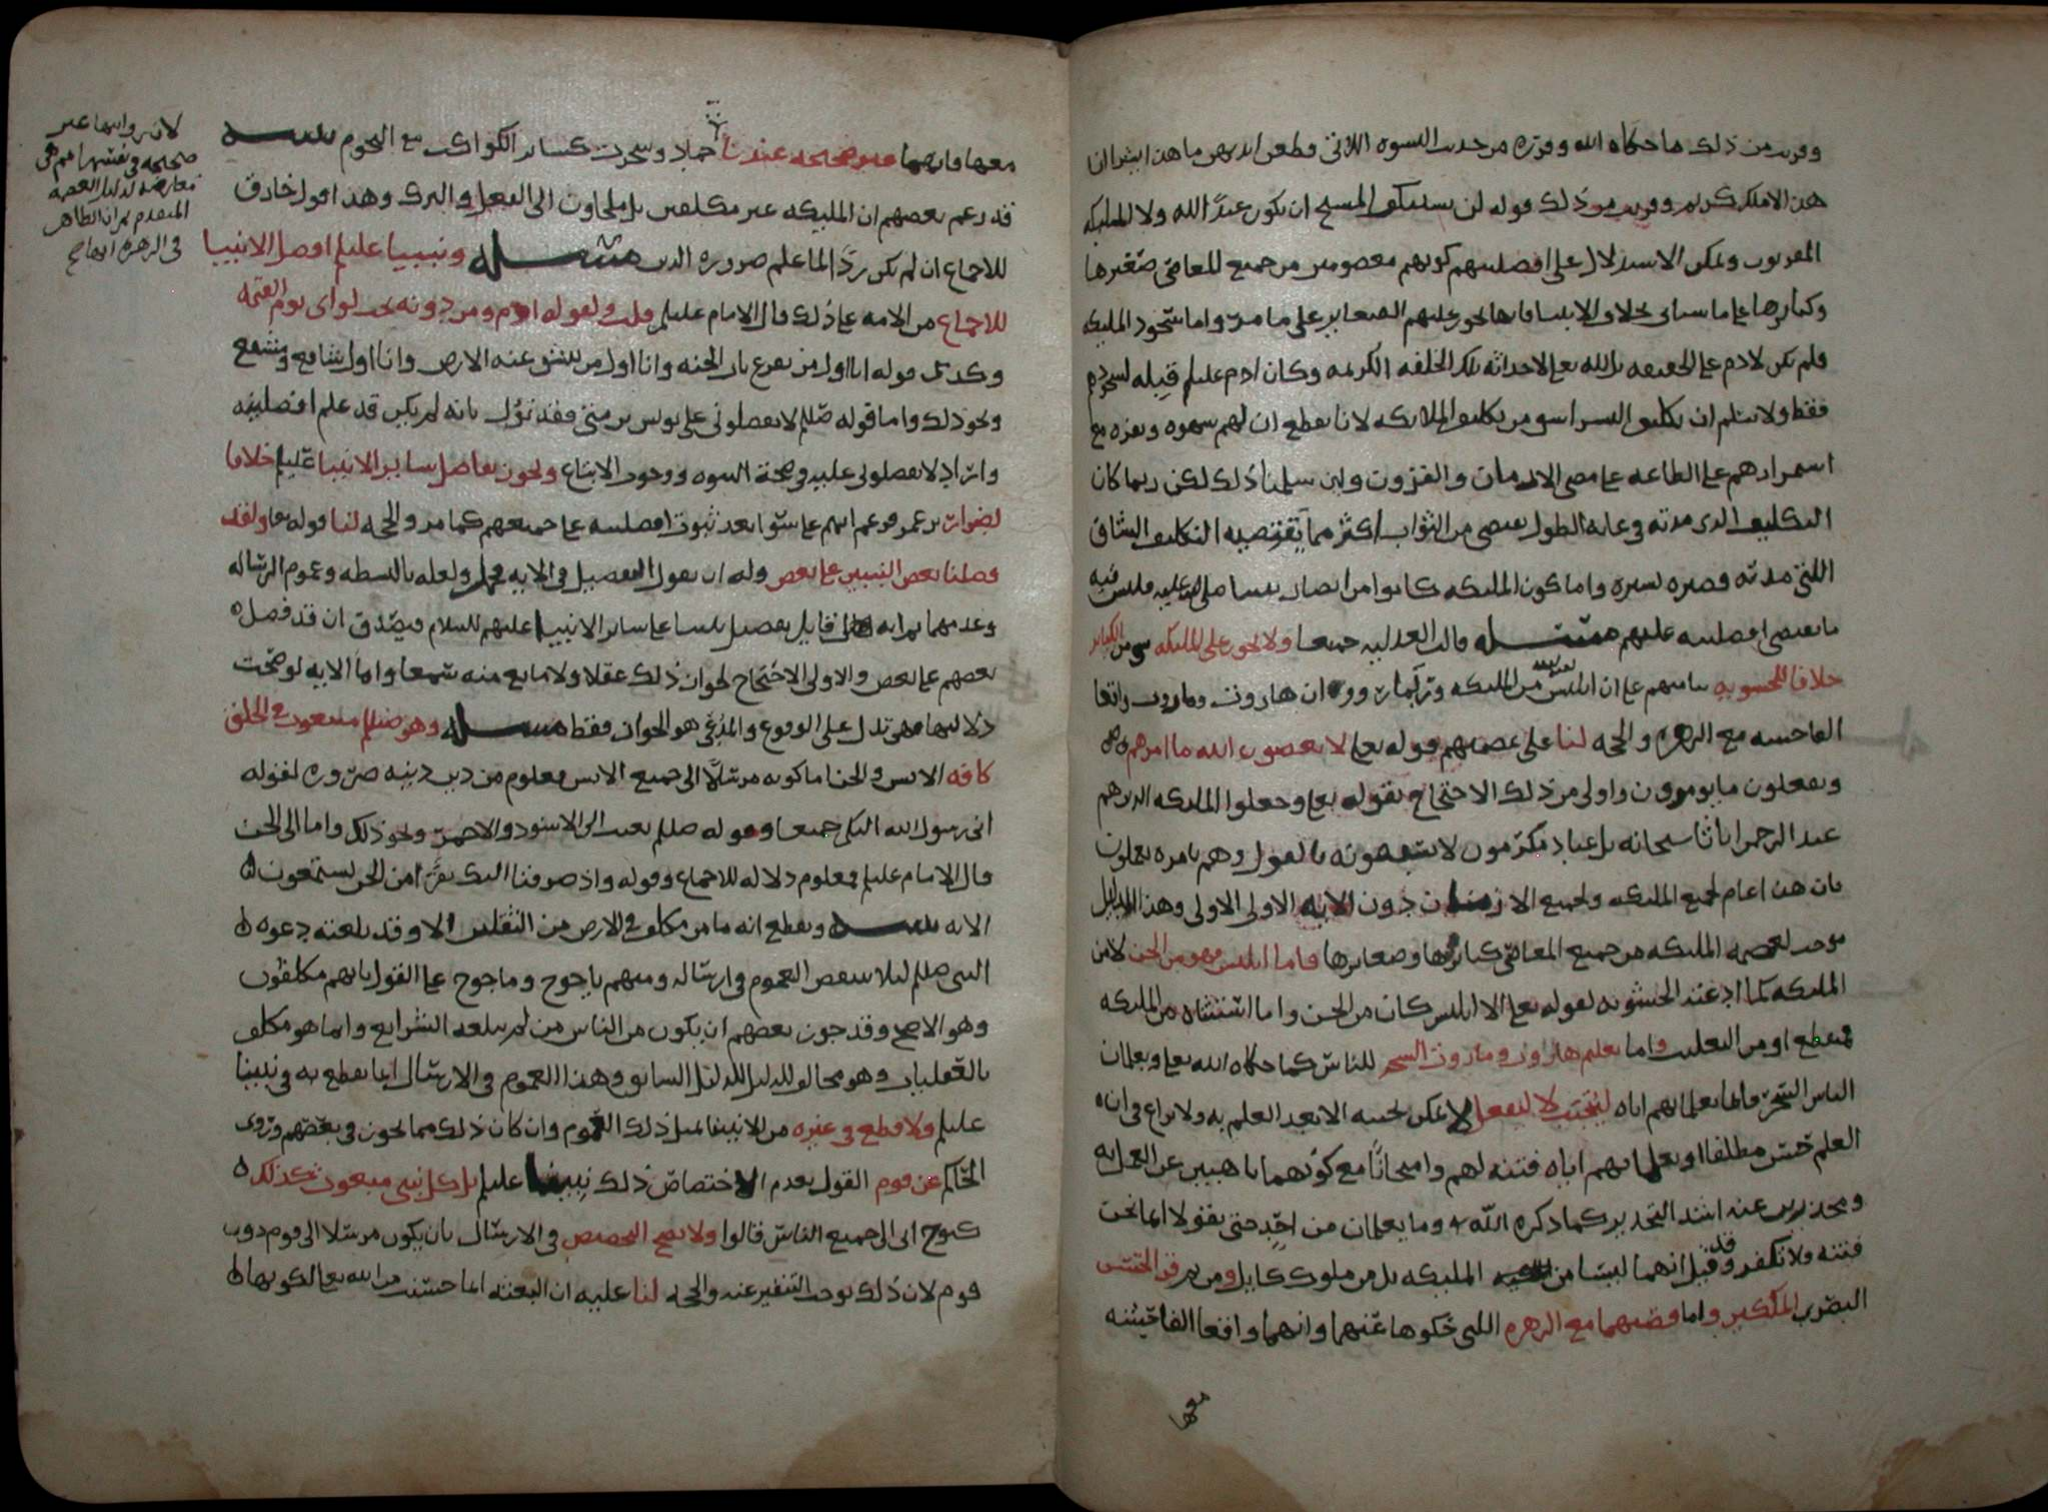 وقريب من ذلك ما حكاه الله وقرره من حديث النسوه اللاتي قطعن ايديهن ما هذا بشرا ان
هذا الا ملك كريم وقريب من ذلك قوله لن يستنكف المسيح ان يكون عبدًا لله ولا الملايكه
المقربون ويمكن الاستدلال على افضليتهم كونهم معصومين من جميع المعاصي صغيرها
وكبايرها على ما سياتي بخلاف الانبيا فانها تجوز عليهم الصغاير على ما مر واما سجود الملايكه
فلم يكن لادم على الحقيقه بل لله تعالى لاحداثه تلك الخلقه الكريمه وكان ادم عليلم قبله لسجودهم
فقط ولا نسلم ان تكليف البشر اشق من تكليف الملايكه لانا نقطع ان لهم شهوه ونفره مع
استمرارهم على الطاعه على مضي الازمان والقرون ولين سلمنا ذلك لكن ربما كان
التكليف الذي مدته في غايه الطول يقتضي من الثواب اكثر مما يقتضيه التكليف الشاق
الذي مدته قصيره يسيره واما كون الملايكه كانوا من انصار نبينا صلى الله عليه فليس فيه
ما يقتضي افضليته عليهم مسـله قالت العدليه جميعا ولا يجوز على الملايكه شي من الكباير
خلافا للحشويه بنا منهم على ان ابليس لعنه الله من الملايكه وان هاروت وماروت واقعا
الفاحشه مع الزهره والحجه لنا على عصمتهم قوله تعالى لا يعصون الله ما امرهم
ويفعلون ما يومرون واولى من ذلك الاحتجاج بقوله تعالى وجعلوا الملايكه الذين هم
عند الرحمن اناثا سبحانه بل عباد مكرمون لا يسبقونه بالقول وهم بامره يعملون
فان هذا عام لجميع الملايكه ولجميع الازمان دون الايه الاولى وهذا الدليل
يوجب لعصمه الملايكه من جميع المعاصي كبايرها وصغايرها فاما ابليس فهو من الجن لا من
الملايكه كما عند الحشويه لقوله تعالى الا ابليس كان من الجن واما استثناه من الملايكه
فمنقطع او من التغليب واما تعليم هاروت وماروت السحر للناس كما حكاه الله تعالى ويعلمان
الناس السحر فانما يعلمانهم اياه ليجتنب لا ليفعل اذ لا يمكن تجنبه الا بعد العلم به ولا نزاع في ان
العلم حسن مطلقا او يعلمانهم اياه فتنه لهم وامتحانًا مع كونهما ناهيين عن العمل به
ومحذرين عنه اشد التحذير كما ذكره الله وما يعلمان من احد حتى يقولا انما نحن
فتنه فلا تكفر وقد قيل انهما ليسا من الملايكه بل من ملوك كابل ومن ثم قرا الحسن
البصري الملكين واما قصتهما مع الزهره التي حكوها عنهما وانهما واقعا الفاحشه
معها
معها فانهما غير صحيحه عندنا جملا وسخرت كساير الكواكب مع النجوم تنبيـه
قد زعم بعضهم ان الملايكه غير مكلفين بل ملجاون الى الفعل والترك وهذا قول خارق
للاجماع ان لم يكن ردًّا لما علم ضروره من الدين مسـله ونبينا عليلم افضل الانبيا
للاجماع من الامه على ذلك قال الامام عليلم قلت ولقوله ادم ومن دونه تحت لواي يوم القيمه
وكذلك قوله انا اول من يقرع باب الجنه وانا اول من تنشق عنه الارض وانا اول شافع ومشفع
ونحو ذلك واما قوله صللم لا تفضلوني على يونس بن متى فقد تؤول بانه لم يكن قد علم افضليته
واراد لا تفضلوني عليه في صحة النبوه ووجوب الاتباع ويجوز تفاضل ساير الانبيا عليلم خلافا
لضرار بن عمر فزعم انهم على سوا بعد ثبوت افضليته على جميعهم كما مر والحجه لنا قوله تعالى ولقد
فضلنا بعض النبيين على بعض وله ان يقول التفصيل في الايه مجمل ولعله بالبسطه وعموم الرساله
وعدمهما ثم انه قايل بتفضيل نبينا على ساير الانبيا عليهم السلام فيصدق ان قد فضل
بعضهم على بعض والاولى الاحتجاج لجواز ذلك عقلا ولا مانع منه سمعا واما الايه لو صحت
دلالتها فهي تدل على الوقوع والمدعى هو الجواز فقط مسـله وهو صللم مبعوث الى الخلق
كافه الانس والجن اما كونه مرسلًا الى جميع الانس فمعلوم من دين دينه ضروره لقوله
اني رسول الله اليكم جميعا وقوله صللم بعثت الى الاسود والاحمر ونحو ذلك واما الى الجن
قال الامام عليلم فمعلوم دلاله للاجماع وقوله واذ صرفنا اليك نفرًا من الجن يستمعون
الايه تنبيـه ويقطع انه ما من مكلف في الارض من الثقلين الا وقد بلغته دعوه
النبي صللم ليلا ينتقص العموم في ارساله ومنهم ياجوج وماجوج على القول بانهم مكلفون
وهو الاصح وقد جوز بعضهم ان يكون من الناس من لم تبلغه الشرايع وانما هو مكلف
بالعقليات وهو مخالف للدليل السابق وهذا العموم في الارسال انما نقطع به في نبينا
عليلم ولا قطع في غيره من الانبيا بمثل ذلك العموم وان كان ذلك مما يجوز في بعضهم وروى
الحاكم عن قوم القول بعدم الاختصاص ذلك نبينا عليلم بل كل نبي مبعوث كذلك
كنوح اي الى جميع الناس قالوا ولا يصح التخصيص في الارسال بان يكون مرسلا الى قوم دون
قوم لان ذلك يوجب التنفير عنه والحجه لنا عليه ان البعثه انما حسنت من الله تعالى لكونها
لان روايتها غير
صحيحه في نفسها ثم هي
معارضه لدليل العصمه
المتقدم ثم ان الظاهر
في الزهره انها